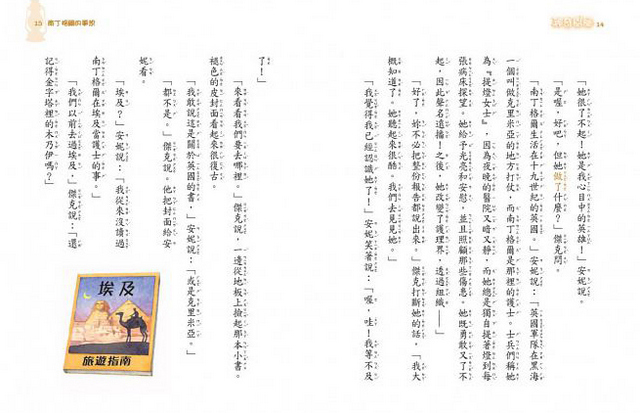 14
「她很了不起！她是我心目中的英雄！」安妮說。
「是喔，好吧，但她做了什麼？」傑克問。
「南丁格爾生活在十九世紀的英國。」安妮說：「英國軍隊在黑海
一個叫做克里米亞的地方打仗，而南丁格爾是那裡的護士。士兵們稱她
為『提燈女士』，因為夜晚的醫院又暗又靜，而她總是獨自提著燈到每
張病床探望。她給予光亮和安慰，並且照顧那些傷患。她既勇敢又了不
起，因此聲名遠播！之後，她改變了護理界，透過組織——」
「好了，妳不必把整份報告都說出來。」傑克打斷她的話，「我大
概知道了。她聽起來很酷。我們去見見她。」
「我覺得我已經認識她了！」安妮笑著說：「喔，哇！我等不及
15 南丁格爾的
了！」
「來看看我們要去哪裡。」傑克說，一邊從地板上撿起那本小書。
褪色的皮封面看起來很復古。
「我敢說這是關於英國的書，」安妮說：「或是克里米亞。」
「都不是。」傑克說。他把封面給安
妮看。
「埃及？」安妮說：「我從來沒讀過
南丁格爾在埃及當護士的事。」
「我們以前去過埃及，」傑克說：「還
記得金字塔裡的木乃伊嗎？」
埃及
旅遊指南